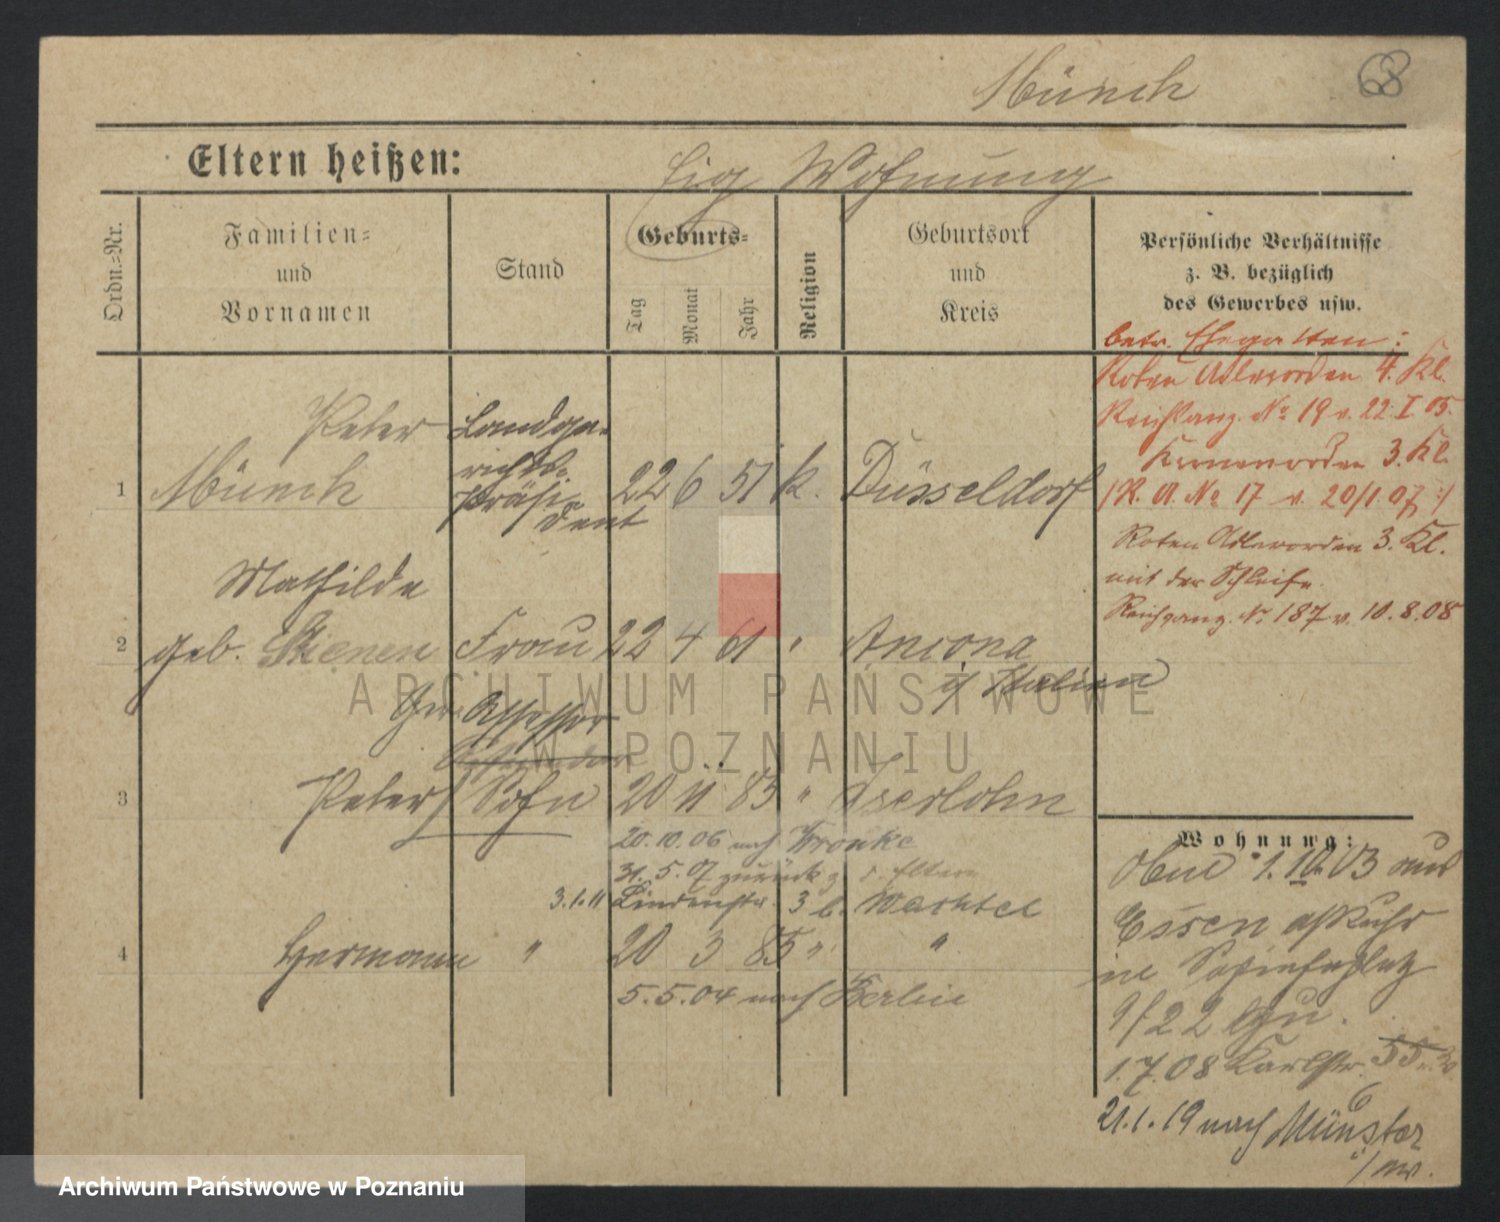 Münch
68
Eltern heißen:
Eig Wohnung
Ordn.=Nr.
Familien=
und
Vornamen
Stand
Geburts=
Tag
Monat
Jahr
Religion
Geburtsort
und
Kreis
Persönliche Verhältnisse
z. B. bezüglich
des Gewerbes usw.
betr. Ehegatten:
Roten Adlerorden 4. Kl.
Reichsanz. No 19 v. 22. I 05.
Kronenorden 3. Kl.
/R. A. No 17 v. 20/1.07/
Roten Adlerorden 3. Kl.
mit der Schleife.
Reichsanz. No 187 v. 10.8.08
1
Peter
Münch
Landge-
richts-
präsi-
dent
22 6 51 k. Düsseldorf
2
Mathilde
geb.
Frau 22 4 61 " Ancona
i/ Italien
Assessor
3
Peter Sohn 20 11 83 " Iserlohn
20.10.06 nach Wronke
31.5.07 zurück z. d. Eltern
3.1.11 Lindenstr. 3 b. Wachtel
4
Hermann " 20 3 85 " "
5.5.04 nach Berlin
Wohnung:
1. 10. 03 aus
Essen a/Ruhr
in
1/22
1.7.08 Karlstr. 55
6
21.1.19 nach Münster
i/
ARCHIWUM PAŃSTWOWE
W POZNANIU
Archiwum Państwowe w Poznaniu